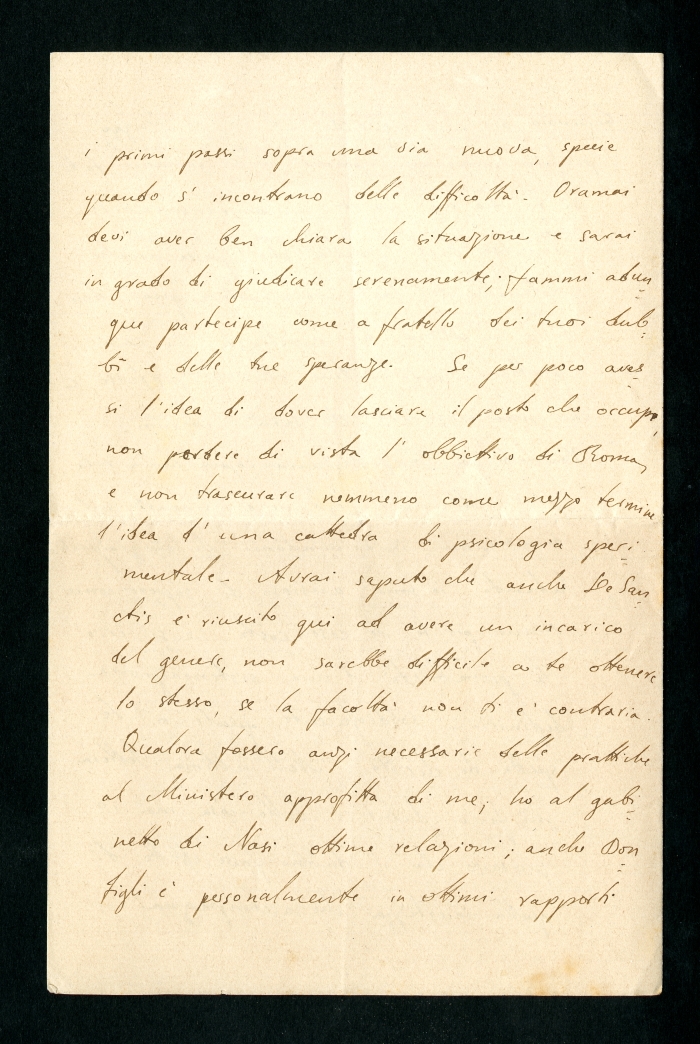 i primi passi sopra una via nuova, specie
quando s'incontrano delle difficoltà. Oramai
devi aver ben chiara la situazione e sarai
in grado di giudicare serenamente; fammi adun=
que partecipe come a fratello dei tuoi dub=
bi e delle tue speranze. Se per poco aves=
si l'idea di dover lasciare il posto che occupi,
non perdere di vista l'obbiettivo di Roma,
e non trascurare nemmeno come mezzo termine
l'idea d'una cattedra di psicologia speri=
mentale. Avrai saputo che anche De San=
ctis è riuscito qui ad avere un incarico
del genere, non sarebbe difficile a te ottenere
lo stesso, se la facoltà non ti è contraria.
Qualora fossero anzi necessarie delle prattiche
al Ministero approfitta di me; ho al gabi=
netto di Nasi ottime relazioni; anche Don=
figli è personalmente in ottimi rapporti